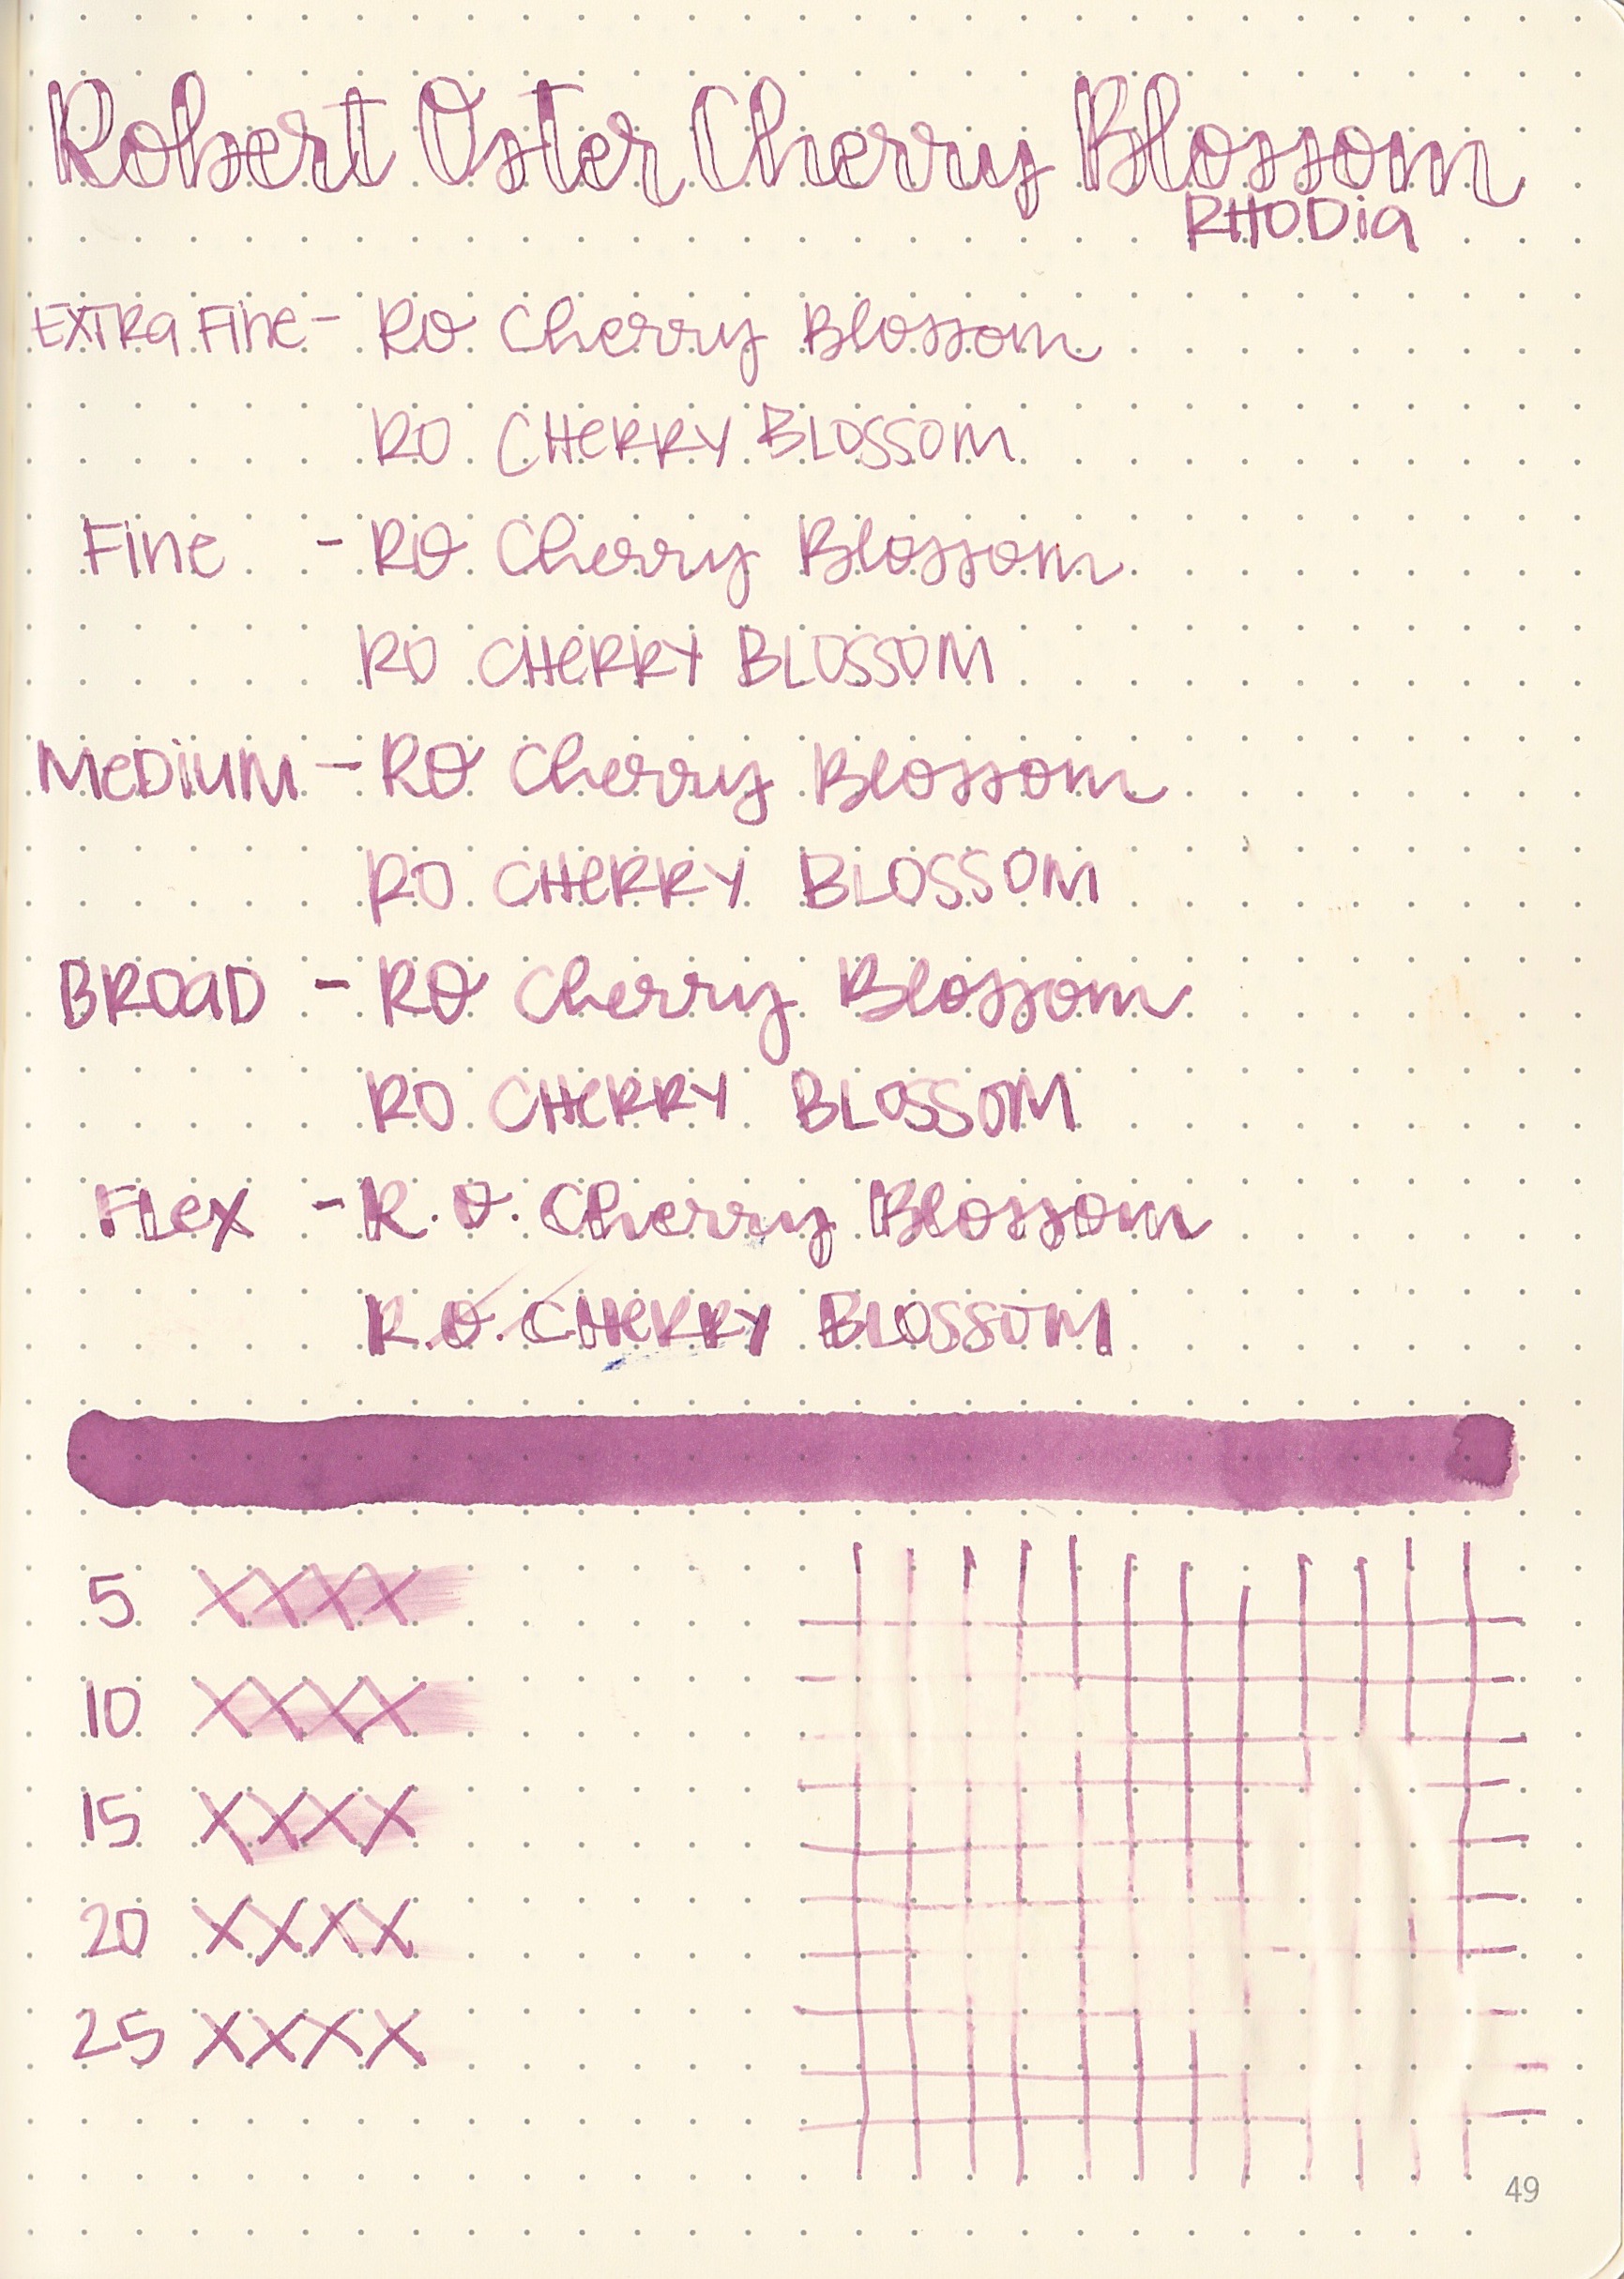 Robert Oster Cherry Blossom
RHODia
EXTRa Fine - RO Cherry Blossom
RO CHeRRY BLOSSOM
Fine - RO Cherry Blossom
RO CHeRRY BLOSSOM
MeDiUM - RO Cherry Blossom
RO CHeRRY BLOSSOM
BROaD - RO Cherry Blossom
RO CHeRRY BLOSSOM
FLex - R.O. Cherry Blossom
R.O. CHeRRY BLOSSOM
5 XXXX
10 XXXX
15 XXXX
20 XXXX
25 XXXX
49